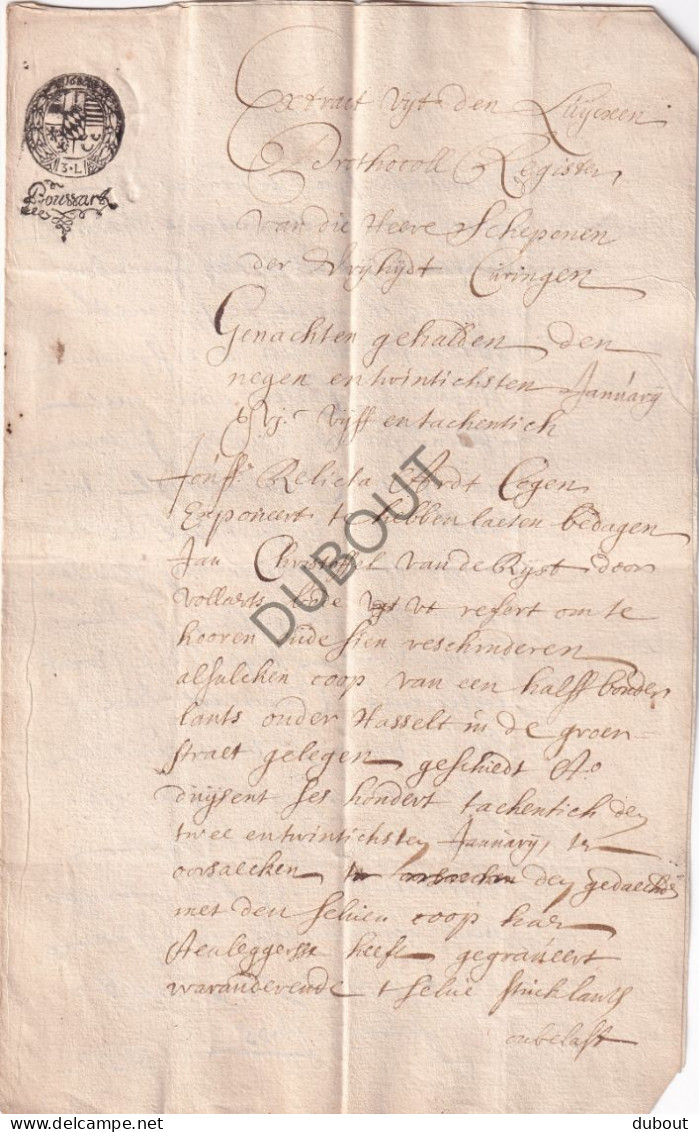 Extract uijt den Luijcxen
Prothocoll Register
van die Heere Schepenen
der Vrijhijdt Curingen
Genachten gehalden den
negen entwintichsten January
vijff entachentich
Jouffr. Relicta Cegen
Exponeert te hebben laeten bedagen
Jan Christoffel van de Rijst door
vollarts bode vt refert om te
hooren ende sien
alsulcken coop van een halff bonder
lants onder Hasselt in de groen
straet gelegen geschiedt Ao
duijsent ses hondert tachentich den
twee entwintichsten January, ter
oorsaecken den gedaechde
met den seluen coop haer
Aenleggersse heeft gegraueert
waranderende t selue stuck lants
onbelast
3·L
DUBOUT
www.delcampe.net
dubout